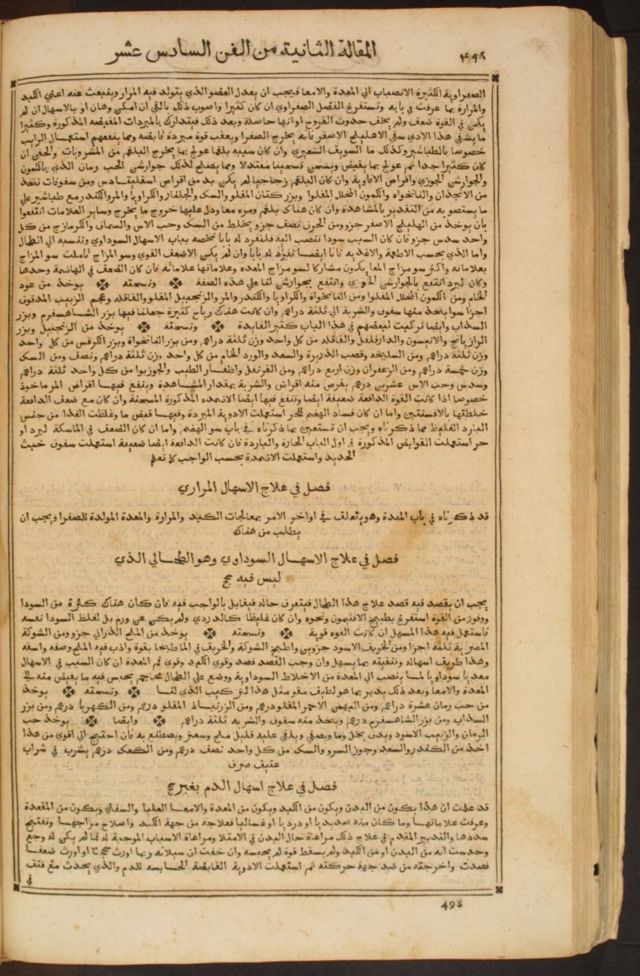 المقالة الثانية من الفن السادس عشر
٤٩٨
الصفراوية الكثيرة الانصباب الي المعدة والامعا فيجب ان يعدل العضو الذي يتولد فيه المرار وينبعث عنه اعني الكبد
والمرارة بما عرفت في بابه وتستفرغ الفضل الصفراوي ان كان كثيرا واصوب ذلك بالقي ان امكن وهان او بالاسهال ان لم
يكن في القوة ضعف ولم يخف حدوث القروح او انها حاصلة وبعد ذلك فيتدارك بالمبردات المغلظة المذكورة وكثيرا
ما يشفي هذا الاذي سقي الاهليلج الاصفر بانه يخرج الصفرا ويعقب قوة مبردة قابضة ومما ينفعهم استعمال الرايب
خصوصا بالطباشير وكذلك ما السويق الشعيري وان كان سببه بلغما عولج بما يخرج البلغم من المشروبات والحقن ان
كان كثيرا جدا ثم عولج بما يقبض ويسخن تسخينا معتدلا ومما يصلح لذلك جوارشن الخبث ورمان الذي بالكمون
والجوارشن الجوزي واقراص الافاوية وان كان البلغم زجاجيا لم يكن بد من اقراص اسقليبادس ومن سفوفات تتخذ
من الانجدان والنانخواه والكمون المخلل المقلوا وبزر كتان المقلو والسك والجلنار والكراويا والمر والكندر مع طباشير علي
ما يستصوبه من التقدير بالمشاهدة وان كان هناك بلغم ومره معا ودل عليها خروج ما يخرج وساير العلامات انتفعوا
بان يوخذ من الهليلج الاصفر جزو ومن الحرف نصف جزو يخلط من السك وحب الاس والسماق والكرمازج من كل
واحد سدس جزو فان كان السبب سودا تنصب اليه فلنفرد له بابا نخصه بباب الاسهال السوداوي ونفسبه الي الطحال
واما الذي بحسب الاطعمة والاغذية فانا ايضا نفرد له بابا وان لم يكن الاضعف القوي وسو المزاج تاملت سو المزاج
بعلاماته واكثر سو مزاج المعا يكون مشاركا لسو مزاج المعدة وعلاماتها علاماته فان كان الضعف في الهاضمة وحدها
وكان لبرد انتفع بالجوارشن الخوزي وانتفع بجوارشن لنا علي هذه الصفة ونسخته يوخذ من عود
الخام ومن الكمون المخلل المقلوا ومن النانخواة والكراويا والكندر والمر والزنجبيل المقلو والقاقلة وعجم الزبيب المدقوق
اجزا سوا يتخذ منها سفوف والشربة الي ثلثة دراهم وان كانت هناك رياح كثيرة جعلنا فيها بزر الشاهسفرم وبزر
السداب وايضا تركيب لبعضهم في هذا الباب كثير الفايدة ونسخته يوخذ من الزنجبيل وبزر
الرازيانج والانيسون والدارفلفل والقاقلة من كل واحد وزن ثلثة دراهم ومن بزر النانخواة وبزر الكرفس من كل واحد
وزن ثلثة دراهم ومن السليخة وقصب الذريرة والسعد والورد الخام من كل واحد وزن ثلثة دراهم ونصف ومن السك
وزن خمسة دراهم ومن الزعفران وزن اربع دراهم ومن القرنفل واظفار الطيب والجوزبوا من كل واحد ثلثة دراهم
وسدس وحب الاس عشرين درهم يقرص منه اقراص والشربة بمقدار المشاهدة وينفع فيها اقراص المرماخوذ
خصوصا اذا كانت القوة الدافعة ضعيفة ايضا وتنفع فيها ايضا الاضمدة المذكورة المسخنة وان كان مع ضعف الدافعة
خلطتها بالافسنتين واما ان كان فساد الهضم لحر استعملت الادوية المبردة وفيها قبض ما وغلظت الغذا من جنس
البارد الغليظ مما ذكرناه ويجب ان تستعين بما ذكرناه في باب سو الهضم واما ان كان الضعف في الماسكة لبرد او
حر استعملت القوابض المذكورة في اول الباب الحارة والباردة فان كانت الدافعة ايضا ضعيفة استعملت سفوف خبث
الحديد واستعملت الاضمدة بحسب الواجب كما تعلم
فصل في علاج الاسهال المراري
قد ذكرناه في باب المعدة وهو يتعلق في اواخر الامر بمعالجات الكبد والمرارة والمعدة المولدة للصفرا ويجب ان
يطلب من هناك
فصل في علاج الاسهال السوداوي وهو الطحالي الذي
ليس فيه سحج
يجب ان يقصد فيه قصد علاج هذا الطحال فيتعرف حاله فيقابل بالواجب فيه فان كان هناك كثرة من السودا
ووفور من القوة استفرغ بطبيخ الافتيمون ونحوه وان كان غليظا كالدردي ولم يكن عن ورم بل لغلظ السودا نفسه
فاستعمل فيه هذا المسهل ان كانت القوة قوية ونسخته يوخذ من الملح الدراني جزو ومن الشوكة
المصرية ثلثة اجزا ومن الخربق الاسود جزوين واطبخ الشوكة والخربق في الماء طبخا بقوة واذب فيه الملح وصفه واسقه
وهذا طريق اسهاله وتنقيته بما يسهل وان وجب الفصد فصد وقوي الكبد وقوي فم المعدة ان كان السبب في الاسهال
معديا سوداويا لما ينصب الي المعدة من الاخلاط السوداوية ووضع علي الطحال محاجم يحبس فيه ما يفيض منه الي
المعدة والامعا وبعد ذلك يدبر بما هو لطيف مقو مثل هذا التركيب الذي لنا ونسخته يوخذ
من حب رمان عشرة دراهم ومن البهمن الاحمر المقلو درهم ومن الزرنباذ المقلو درهم ومن الكهربا درهم ومن بزر
السداب ومن بزر الشاهسفرم درهم ويتخذ منه سفوف والشربة ثلثة دراهم وايضا يوخذ حب
الرمان والزبيب الاسود ويدق بخل وما ويصفي ويلقي عليه قليل ملح وسعتر ويصطبغ به فان احتيج الي اقوي من هذا
اخذ من الكندر والسعد وجوز السرو والسك من كل واحد نصف درهم ومن الكعك درهم يشرب في شراب
عتيق صرف
فصل في علاج اسهال الدم بغير سحج
قد علمت ان هذا يكون من البدن ويكون من الكبد ويكون من المعدة والامعا العليا والسفلي ويكون من المقعدة
وعرفت علاماتها وما كان منه صديديا او درديا او غساليا فعلاجه من جهة الكبد واصلاح مزاجها وتفتيح
سددها والتدبير المقدم في علاج ذلك مراعاة حال البدن في الامتلا ومراعاة الاسباب الموجبة له فما لم يكن له وجع
وحدست انه من البدن او عن الكبد ولم يسقط قوة لم يحبسه وان خفت ان سيلانه ربما اورث سحجا او اورث ضعفا
فصدت واخرجته من ضد جهة حركته ثم استعملت الادوية القابضة الحابسة للدم والذي يحدث مع فتق
في
498